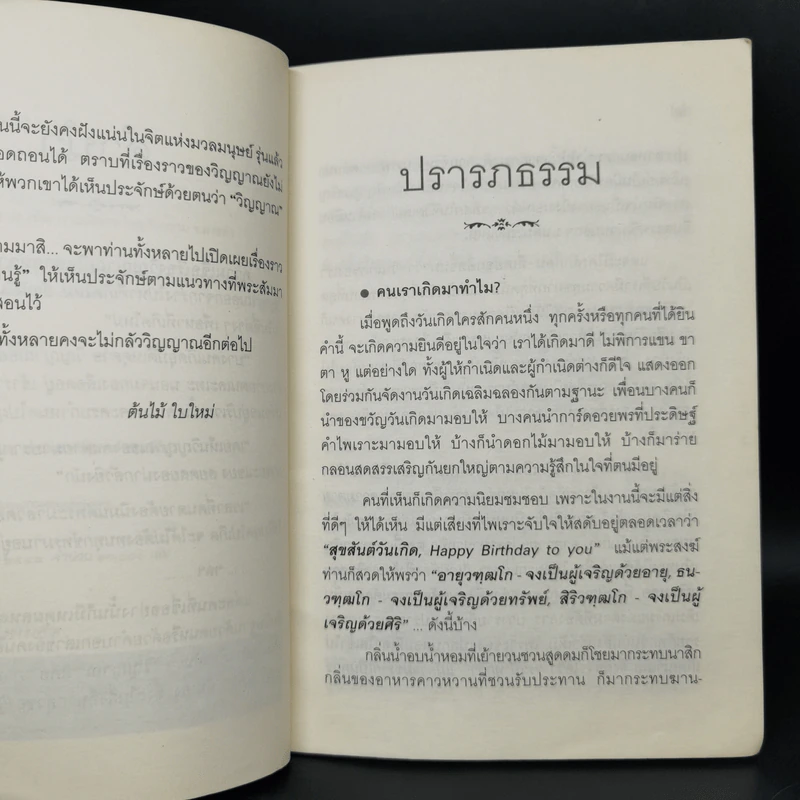 นนี้จะยังคงฝังแน่นในจิตแห่งมวลมนุษย์ รุ่นแล้ว
อดถอนได้ ตราบที่เรื่องราวของวิญญาณยังไม่
ห้พวกเขาได้เห็นประจักษ์ด้วยตนว่า “วิญญาณ”
ามมาสิ... จะพาท่านทั้งหลายไปเปิดเผยเรื่องราว
นรู้” ให้เห็นประจักษ์ตามแนวทางที่พระสัมมา
สอนไว้
ทั้งหลายคงจะไม่กลัววิญญาณอีกต่อไป
ต้นไม้ ใบใหม่
ปรารภธรรม
● คนเราเกิดมาทำไม?
เมื่อพูดถึงวันเกิดใครสักคนหนึ่ง ทุกครั้งหรือทุกคนที่ได้ยิน
คำนี้ จะเกิดความยินดีอยู่ในใจว่า เราได้เกิดมาดี ไม่พิการแขน ขา
ตา หู แต่อย่างใด ทั้งผู้ให้กำเนิดและผู้กำเนิดต่างก็ดีใจ แสดงออก
โดยร่วมกันจัดงานวันเกิดเฉลิมฉลองกันตามฐานะ เพื่อนบางคนก็
นำของขวัญวันเกิดมามอบให้ บางคนนำการ์ดอวยพรที่ประดิษฐ์
คำไพเราะมามอบให้ บ้างก็นำดอกไม้มามอบให้ บ้างก็มาร่าย
กลอนสดสรรเสริญกันยกใหญ่ตามความรู้สึกในใจที่ตนมีอยู่
คนที่เห็นก็เกิดความนิยมชมชอบ เพราะในงานนี้จะมีแต่สิ่ง
ที่ดีๆ ให้ได้เห็น มีแต่เสียงที่ไพเราะจับใจให้สดับอยู่ตลอดเวลาว่า
“สุขสันต์วันเกิด, Happy Birthday to you” แม้แต่พระสงฆ์
ท่านก็สวดให้พรว่า “อายุวฑฺฒโก - จงเป็นผู้เจริญด้วยอายุ, ธน-
วฑฺฒโก - จงเป็นผู้เจริญด้วยทรัพย์, สิริวฑฺฒโก - จงเป็นผู้
เจริญด้วยศิริ” ... ดังนี้บ้าง
กลิ่นน้ำอบน้ำหอมที่เย้ายวนชวนสูดดมก็โชยมากระทบนาสิก
กลิ่นของอาหารคาวหวานที่ชวนรับประทาน ก็มากระทบฆาน-